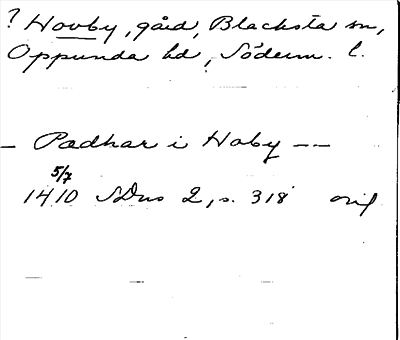 ? Hovby, gård, Blacksta sn,
Oppunda hd, Söderm. l.
— Padhar i Hoby — —
5/7
1410 SDns 2, s. 318 orig